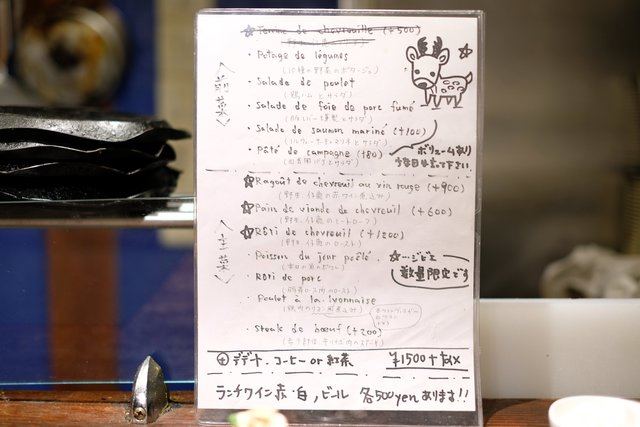 ☆Terrine de chevreuille (+500)
・Potage de légumes
(10種の野菜のポタージュ)
・Salade de poulet
(鶏ハムとサラダ)
・Salade de foie de porc fumé
・Salade de saumon mariné (+100)
・Pâté de campagne (+80)
(田舎風パテとサラダ)
ボリュームあり
☆Ragoût de chevreuil au vin rouge (+900)
(野生仔鹿の赤ワイン煮込み)
☆Pain de viande de chevreuil (+600)
(野生仔鹿のミートローフ)
☆Rôti de chevreuil (+1200)
(野生仔鹿のロースト)
・Poisson du jour poêlé
☆…ジビエ
数量限定です
・Rôti de porc
・Poulet à la lyonnaise
・Steak de bœuf (+200)
⊕デザート、コーヒー or 紅茶 ¥1500+tax
ランチワイン赤・白、ビール 各500yenあります!!